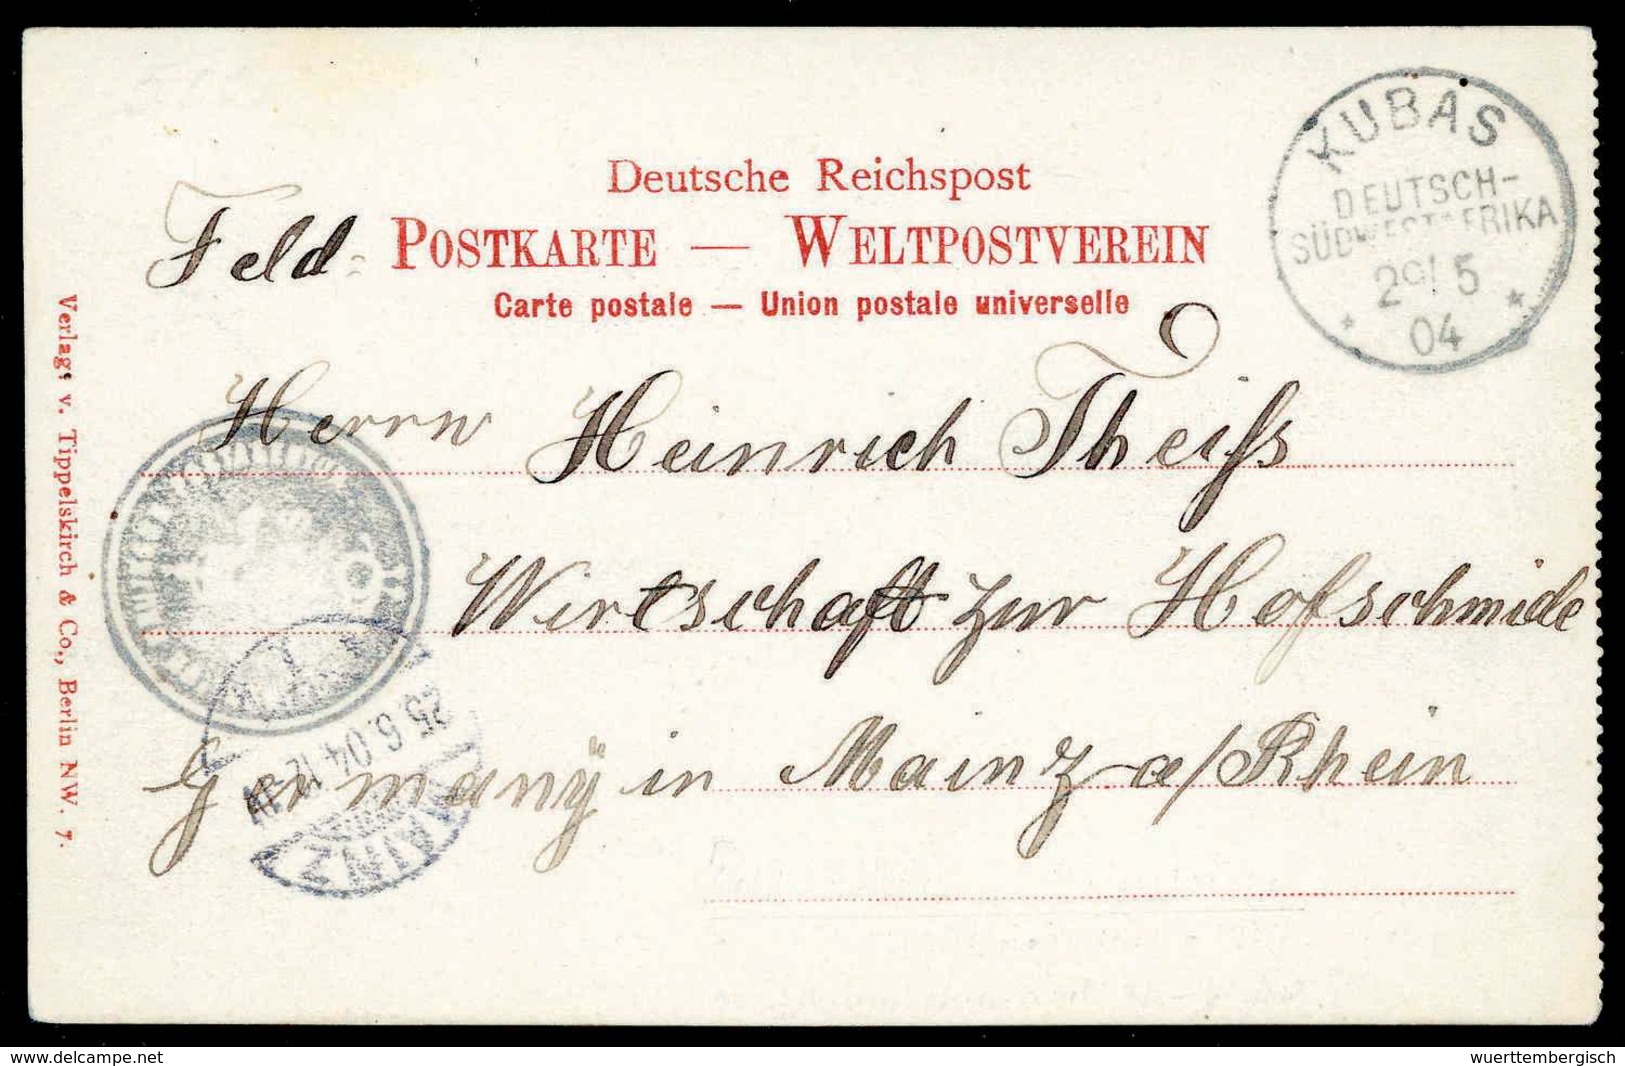 Deutsche Reichspost
Feld- POSTKARTE — WELTPOSTVEREIN
Carte postale — Union postale universelle
KUBAS
DEUTSCH-
SÜDWESTAFRIKA
5
04
Herrn Heinrich Theiss
Wirtschaft zur Hofschmide
Germanÿ in Mainz a/Rhein
MAINZ
25.6.04
Verlag v. Tippelskirch & Co., Berlin NW. 7.
www.delcampe.net
wuerttembergisch